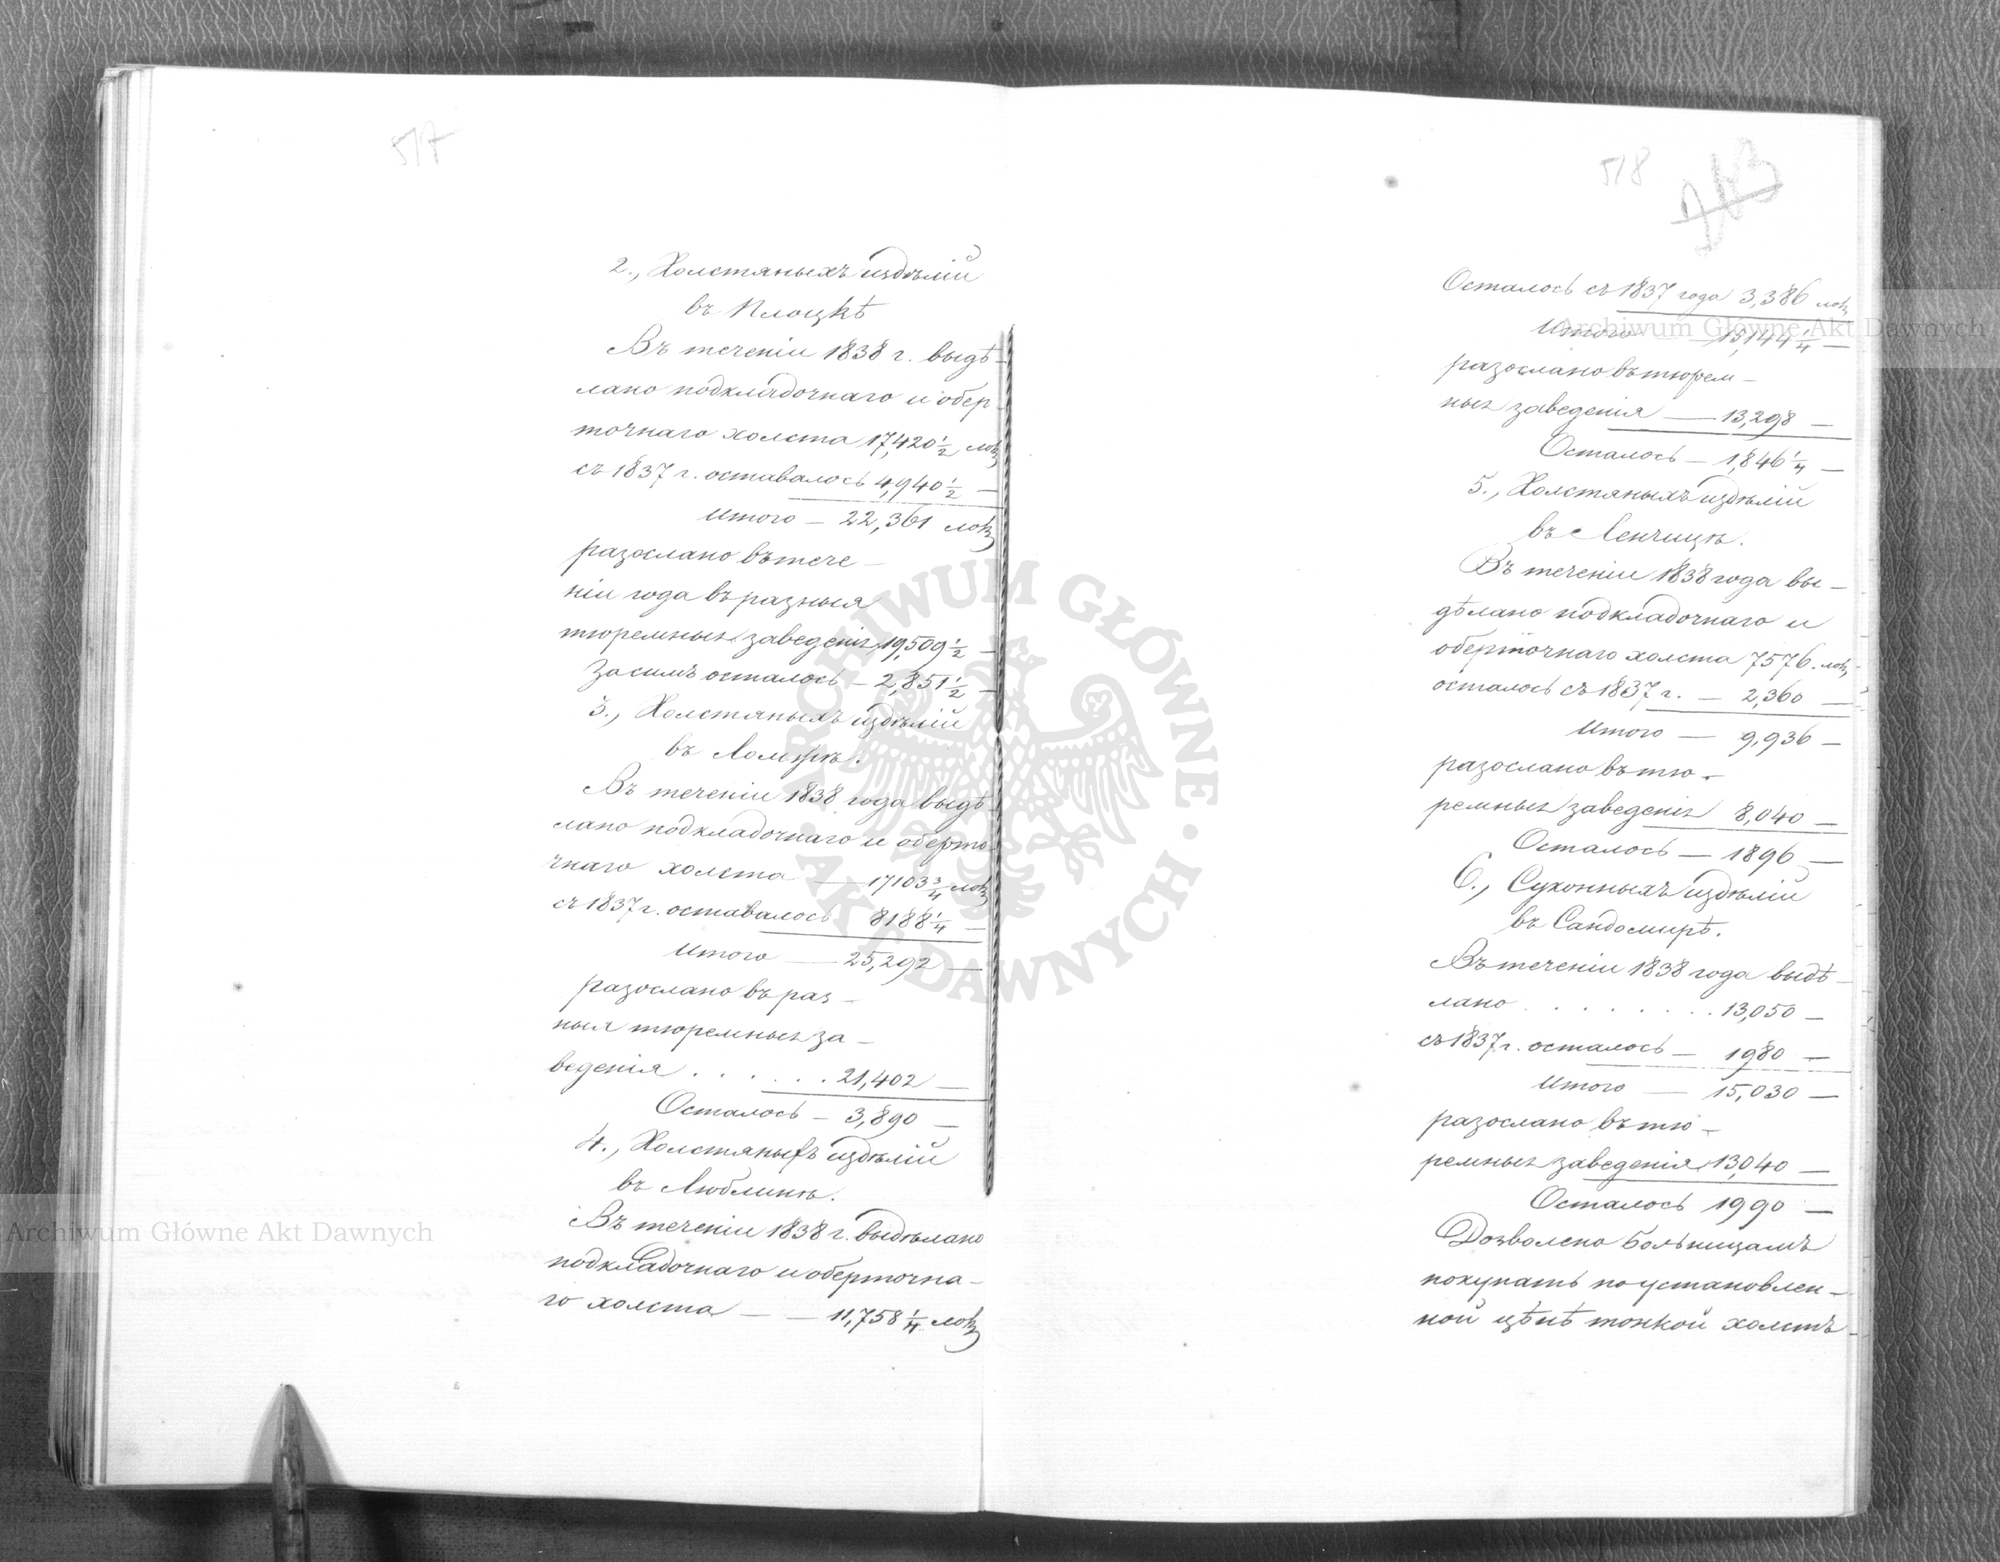 517
2., Холстяныхъ издѣлій
въ Плоцкѣ
Въ теченіи 1838 г. выдѣ-
лано подкладочнаго и обер-
точнаго холста 17,420 1/2 лок
съ 1837 г. оставалось 4,940 1/2 —
Итого — 22,361 лок
разослано въ тече-
ніи года въ разныя
тюремныя заведенія 19,509 1/2 —
Засимъ осталось — 2,851 1/2 —
3., Холстяныхъ издѣлій
въ Ломжѣ.
Въ теченіи 1838 года выдѣ-
лано подкладочнаго и оберто-
чнаго холста — 17103 3/4 лок
съ 1837 г. оставалось 8188 1/4 —
Итого — 25,292 —
разослано въ раз-
ныя тюремныя за-
веденія . . . . . . 21,402 —
Осталось — 3,890 —
4., Холстяныхъ издѣлій
въ Люблинѣ.
Въ теченіи 1838 г. выдѣлано
подкладочнаго и оберточна-
го холста — — 11,758 1/4 лок
518
263
Осталось съ 1837 года 3,386 лок
Итого — 15,144 1/4 —
разослано въ тюрем-
ныя заведенія — 13,298 —
Осталось — 1,846 1/4 —
5., Холстяныхъ издѣлій
въ Ленчицѣ.
Въ теченіи 1838 года вы-
дѣлано подкладочнаго и
оберточнаго холста 7576. лок
осталось съ 1837 г. — 2,360 —
Итого — 9,936 —
разослано въ тю-
ремныя заведенія 8,040 —
Осталось — 1896 —
6., Суконныхъ издѣлій
въ Сандомирѣ.
Въ теченіи 1838 года выдѣ-
лано . . . . . . . . 13,050 —
съ 1837 г. осталось — 1980 —
Итого — 15,030 —
разослано въ тю-
ремныя заведенія 13,040 —
Осталось 1990 —
Дозволено Больницамъ
покупать по установлен-
ной цѣнѣ тонкой холстъ
Archiwum Główne Akt Dawnych
Archiwum Główne Akt Dawnych
ARCHIWUM GŁÓWNE · AKT DAWNYCH ·